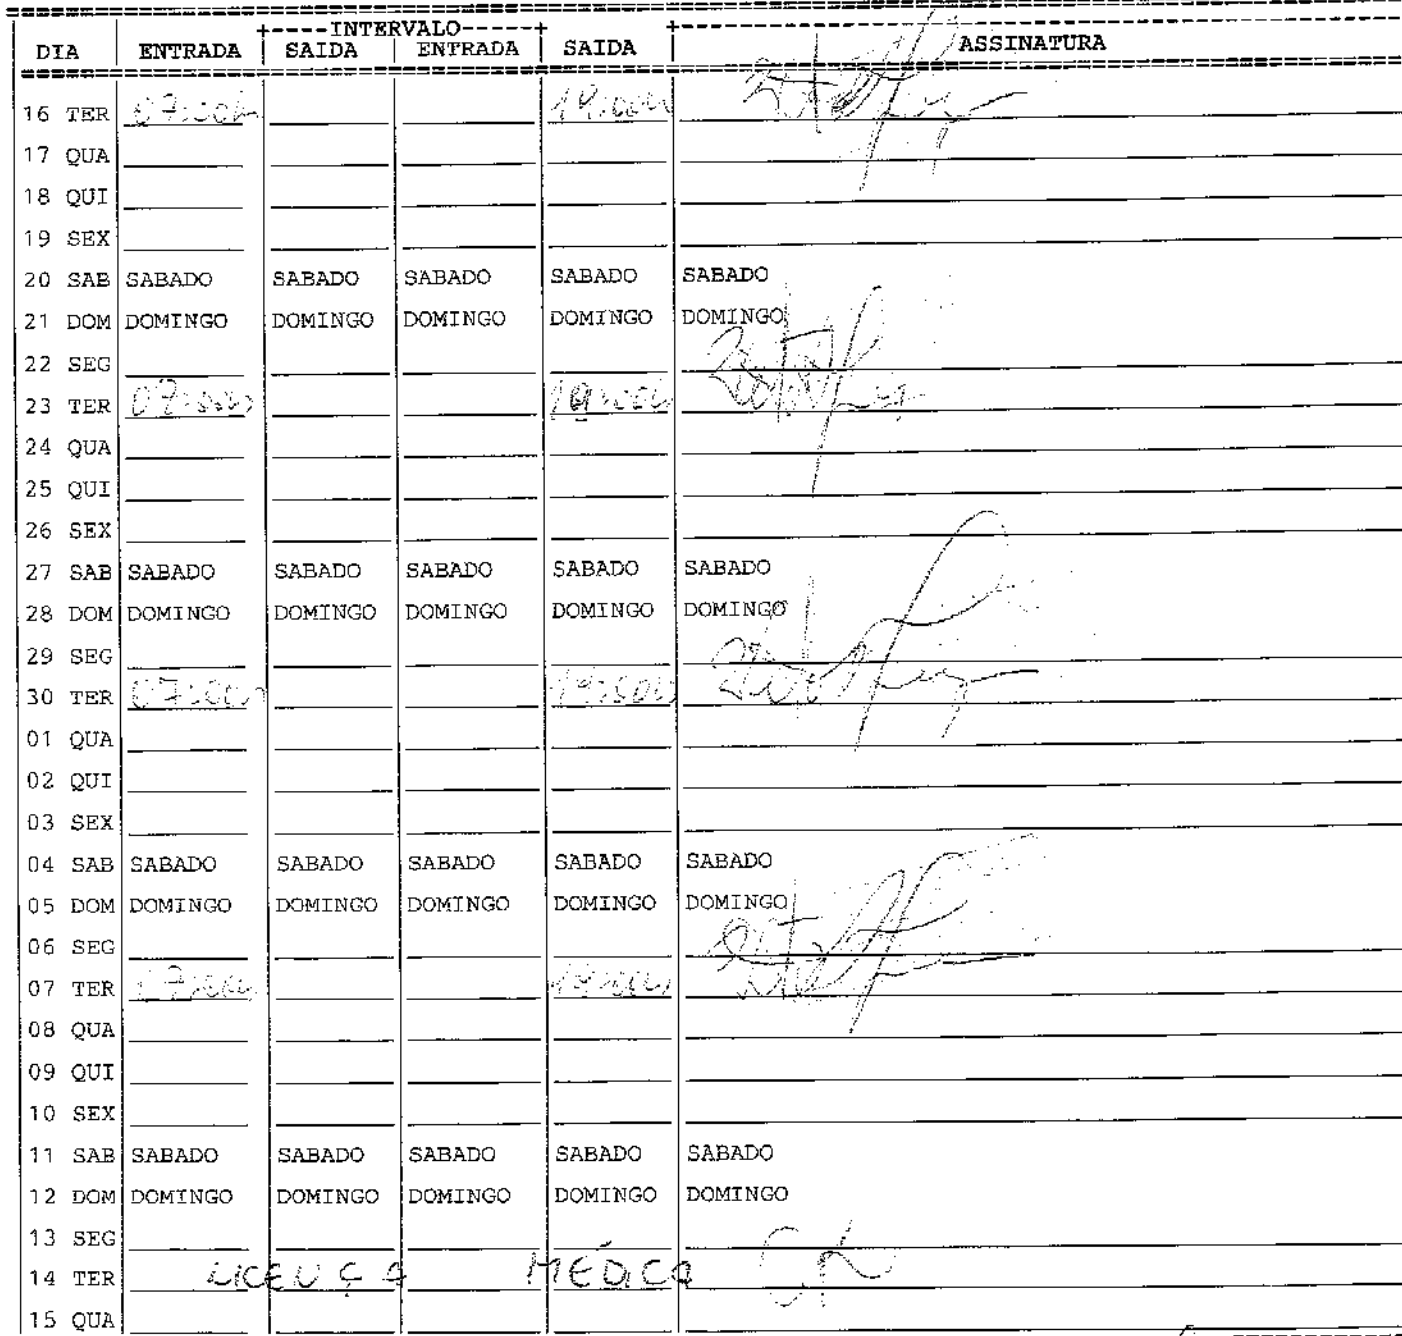 +----INTERVALO-----+
DIA ENTRADA SAIDA ENTRADA SAIDA ASSINATURA
16 TER 07:00h 19:00h
17 QUA
18 QUI
19 SEX
20 SAB SABADO SABADO SABADO SABADO SABADO
21 DOM DOMINGO DOMINGO DOMINGO DOMINGO DOMINGO
22 SEG
23 TER 07:00h 19:00h
24 QUA
25 QUI
26 SEX
27 SAB SABADO SABADO SABADO SABADO SABADO
28 DOM DOMINGO DOMINGO DOMINGO DOMINGO DOMINGO
29 SEG
30 TER 07:00h 19:00h
01 QUA
02 QUI
03 SEX
04 SAB SABADO SABADO SABADO SABADO SABADO
05 DOM DOMINGO DOMINGO DOMINGO DOMINGO DOMINGO
06 SEG
07 TER 19:00h
08 QUA
09 QUI
10 SEX
11 SAB SABADO SABADO SABADO SABADO SABADO
12 DOM DOMINGO DOMINGO DOMINGO DOMINGO DOMINGO
13 SEG
14 TER LICENÇA MÉDICA
15 QUA